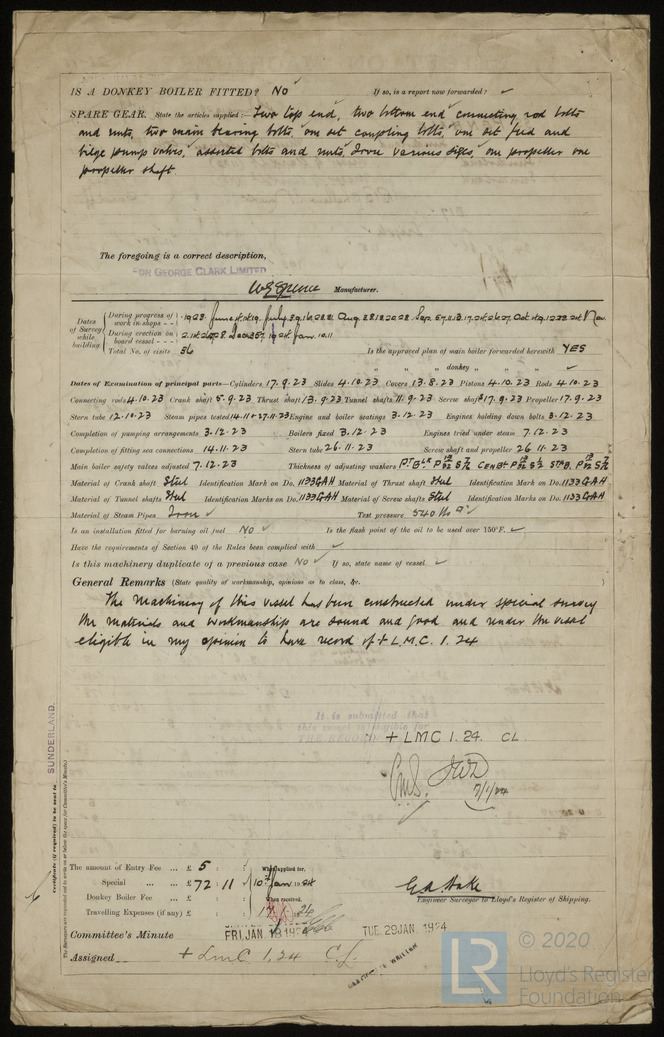 IS A DONKEY BOILER FITTED? No ✓ If so, is a report now forwarded? ✓
SPARE GEAR. State the articles supplied:— Two top end, two bottom end connecting rod bolts
and nuts, two main bearing bolts, one set coupling bolts, one set feed and
bilge pump valves, assorted bolts and nuts, Iron various sizes, one propeller one
propeller shaft.
The foregoing is a correct description,
FOR GEORGE CLARK LIMITED
Manufacturer.
Dates of Survey while building
During progress of work in shops - -
During erection on board vessel - - -
Total No. of visits 56
Is the approved plan of main boiler forwarded herewith YES
" " " donkey " " " ✓
Dates of Examination of principal parts—Cylinders 17.9.23 Slides 4.10.23 Covers 13.8.23 Pistons 4.10.23 Rods 4.10.23
Connecting rods 4.10.23 Crank shaft 5.9.23 Thrust shaft 13.9.23 Tunnel shafts 11.9.23 Screw shaft 17.9.23 Propeller 17.9.23
Stern tube 12.10.23 Steam pipes tested 14.11 & 27.11.23 Engine and boiler seatings 3.12.23 Engines holding down bolts 3.12.23
Completion of pumping arrangements 3.12.23 Boilers fixed 3.12.23 Engines tried under steam 7.12.23
Completion of fitting sea connections 14.11.23 Stern tube 26.11.23 Screw shaft and propeller 26.11.23
Main boiler safety valves adjusted 7.12.23 Thickness of adjusting washers
Material of Crank shaft Steel Identification Mark on Do. 1133GAH Material of Thrust shaft Steel Identification Mark on Do. 1133GAH
Material of Tunnel shafts Steel Identification Marks on Do. 1133GAH Material of Screw shafts Steel Identification Marks on Do. 1133GAH
Material of Steam Pipes Iron ✓ Test pressure 540 lbs
Is an installation fitted for burning oil fuel No ✓ Is the flash point of the oil to be used over 150°F. ✓
Have the requirements of Section 49 of the Rules been complied with ✓
Is this machinery duplicate of a previous case No ✓ If so, state name of vessel ✓
General Remarks (State quality of workmanship, opinions as to class, &c.
The machinery of this vessel has been constructed under special survey
the materials and workmanship are sound and good and render the vessel
eligible in my opinion to have record of + L.M.C. 1.24
It is submitted that
this vessel is eligible for
THE RECORD + LMC 1.24. CL.
7/1/24
SUNDERLAND.
Certificate (if required) to be sent to
The Surveyors are requested not to write on or below the space for Committee's Minute.
The amount of Entry Fee ... £ 5 : : When applied for,
Special ... ... £ 72 : 11 : 10th Jan 1924
Donkey Boiler Fee ... £ : : When received,
Travelling Expenses (if any) £ : :
Engineer Surveyor to Lloyd's Register of Shipping.
Committee's Minute FRI. JAN 18 1924 TUE. 29 JAN 1924
Assigned + LMC 1.24 C.L.
CERTIFICATE WRITTEN
LR © 2020
Lloyd's Register
Foundation